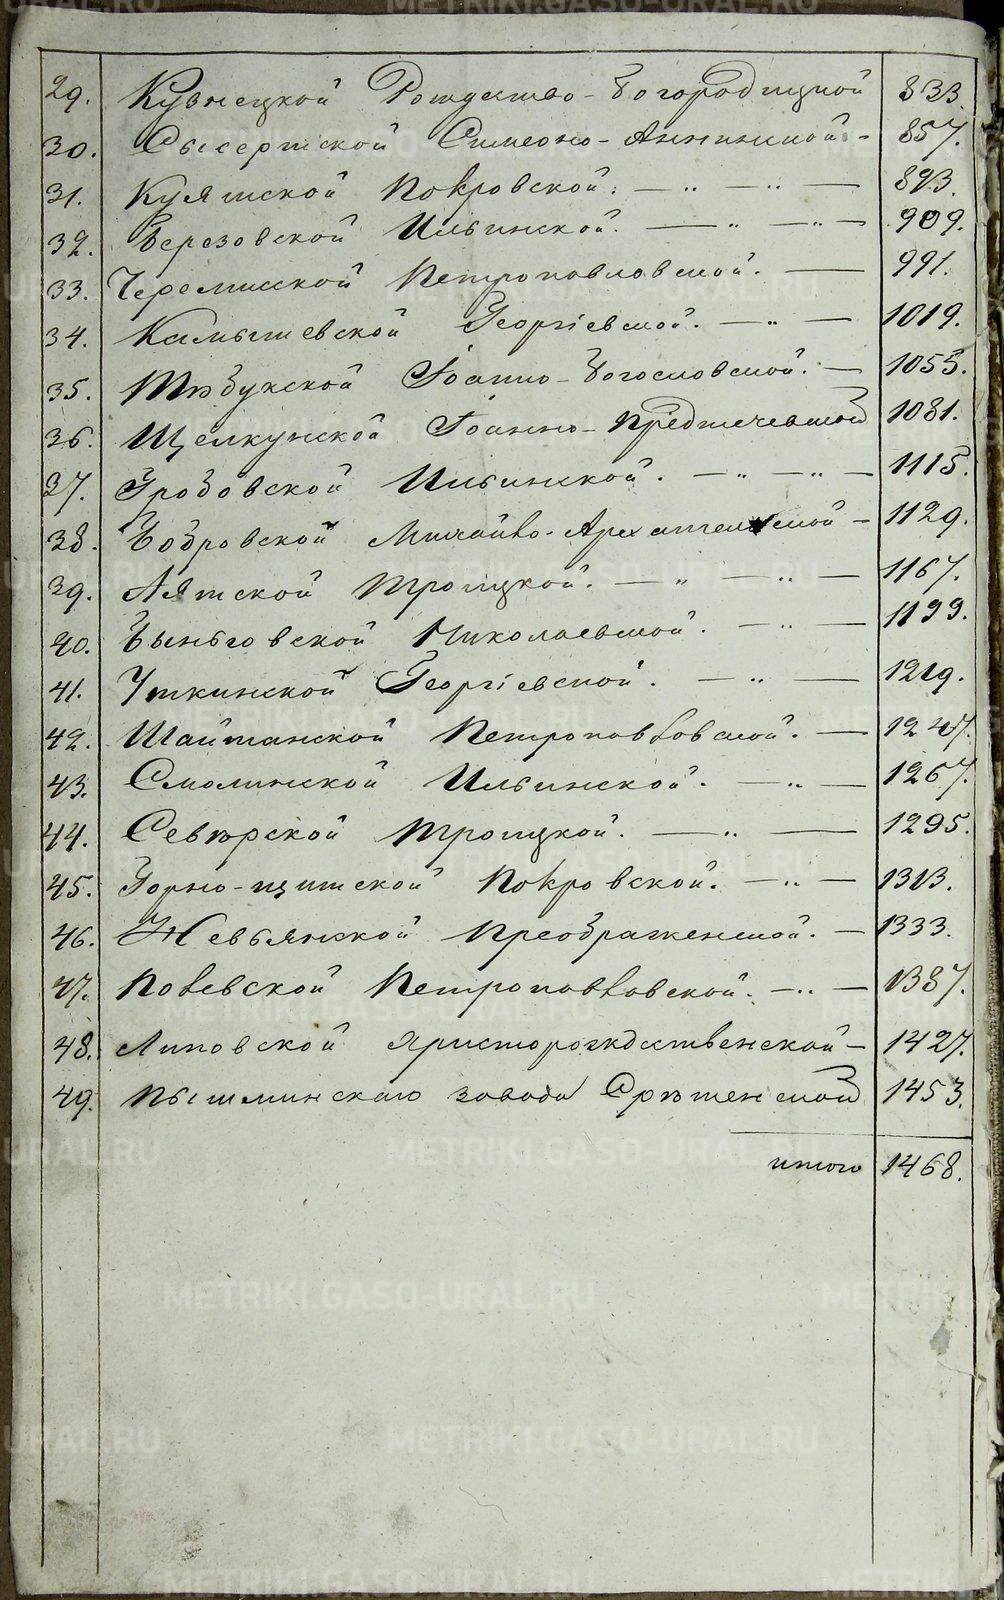 29. Кузнецкой Рождество-Богородицкой 833.
30. Сысертской Симеоно-Аннинской - 857.
31. Куяшской Покровской. — „ — „ — 893.
32. Березовской Ильинской. — „ — „ — 909.
33. Черемисской Петропавловской. — 991.
34. Камышевской Георгіевской. — „ — 1019.
35. Тюбукской Іоанно-Богословской. — 1055.
36. Щелкунской Іоанно-Предтечевской 1081.
37. Гробовской Ильинской. — „ — „ — 1115.
38. Бобровской Михайло-Архангельской - 1129.
39. Аятской Троицкой. — „ — „ — 1167.
40. Быньговской Николаевской. — „ — 1199.
41. Уткинской Георгіевской. — „ — 1219.
42. Шайтанской Петропавловской. — 1247.
43. Смолинской Ильинской. „ — 1267.
44. Севѣрской Троицкой. — „ — 1295.
45. Горно-щитской Покровской. — „ — 1313.
46. Невьянской Преображенской. — 1333.
47. Полевской Петропавловской. — „ — 1387.
48. Липовской Христорождественской — 1427.
49. Пышминскаго завода Срѣтенской 1453.
итого 1468.
METRIKI.GASO-URAL.RU